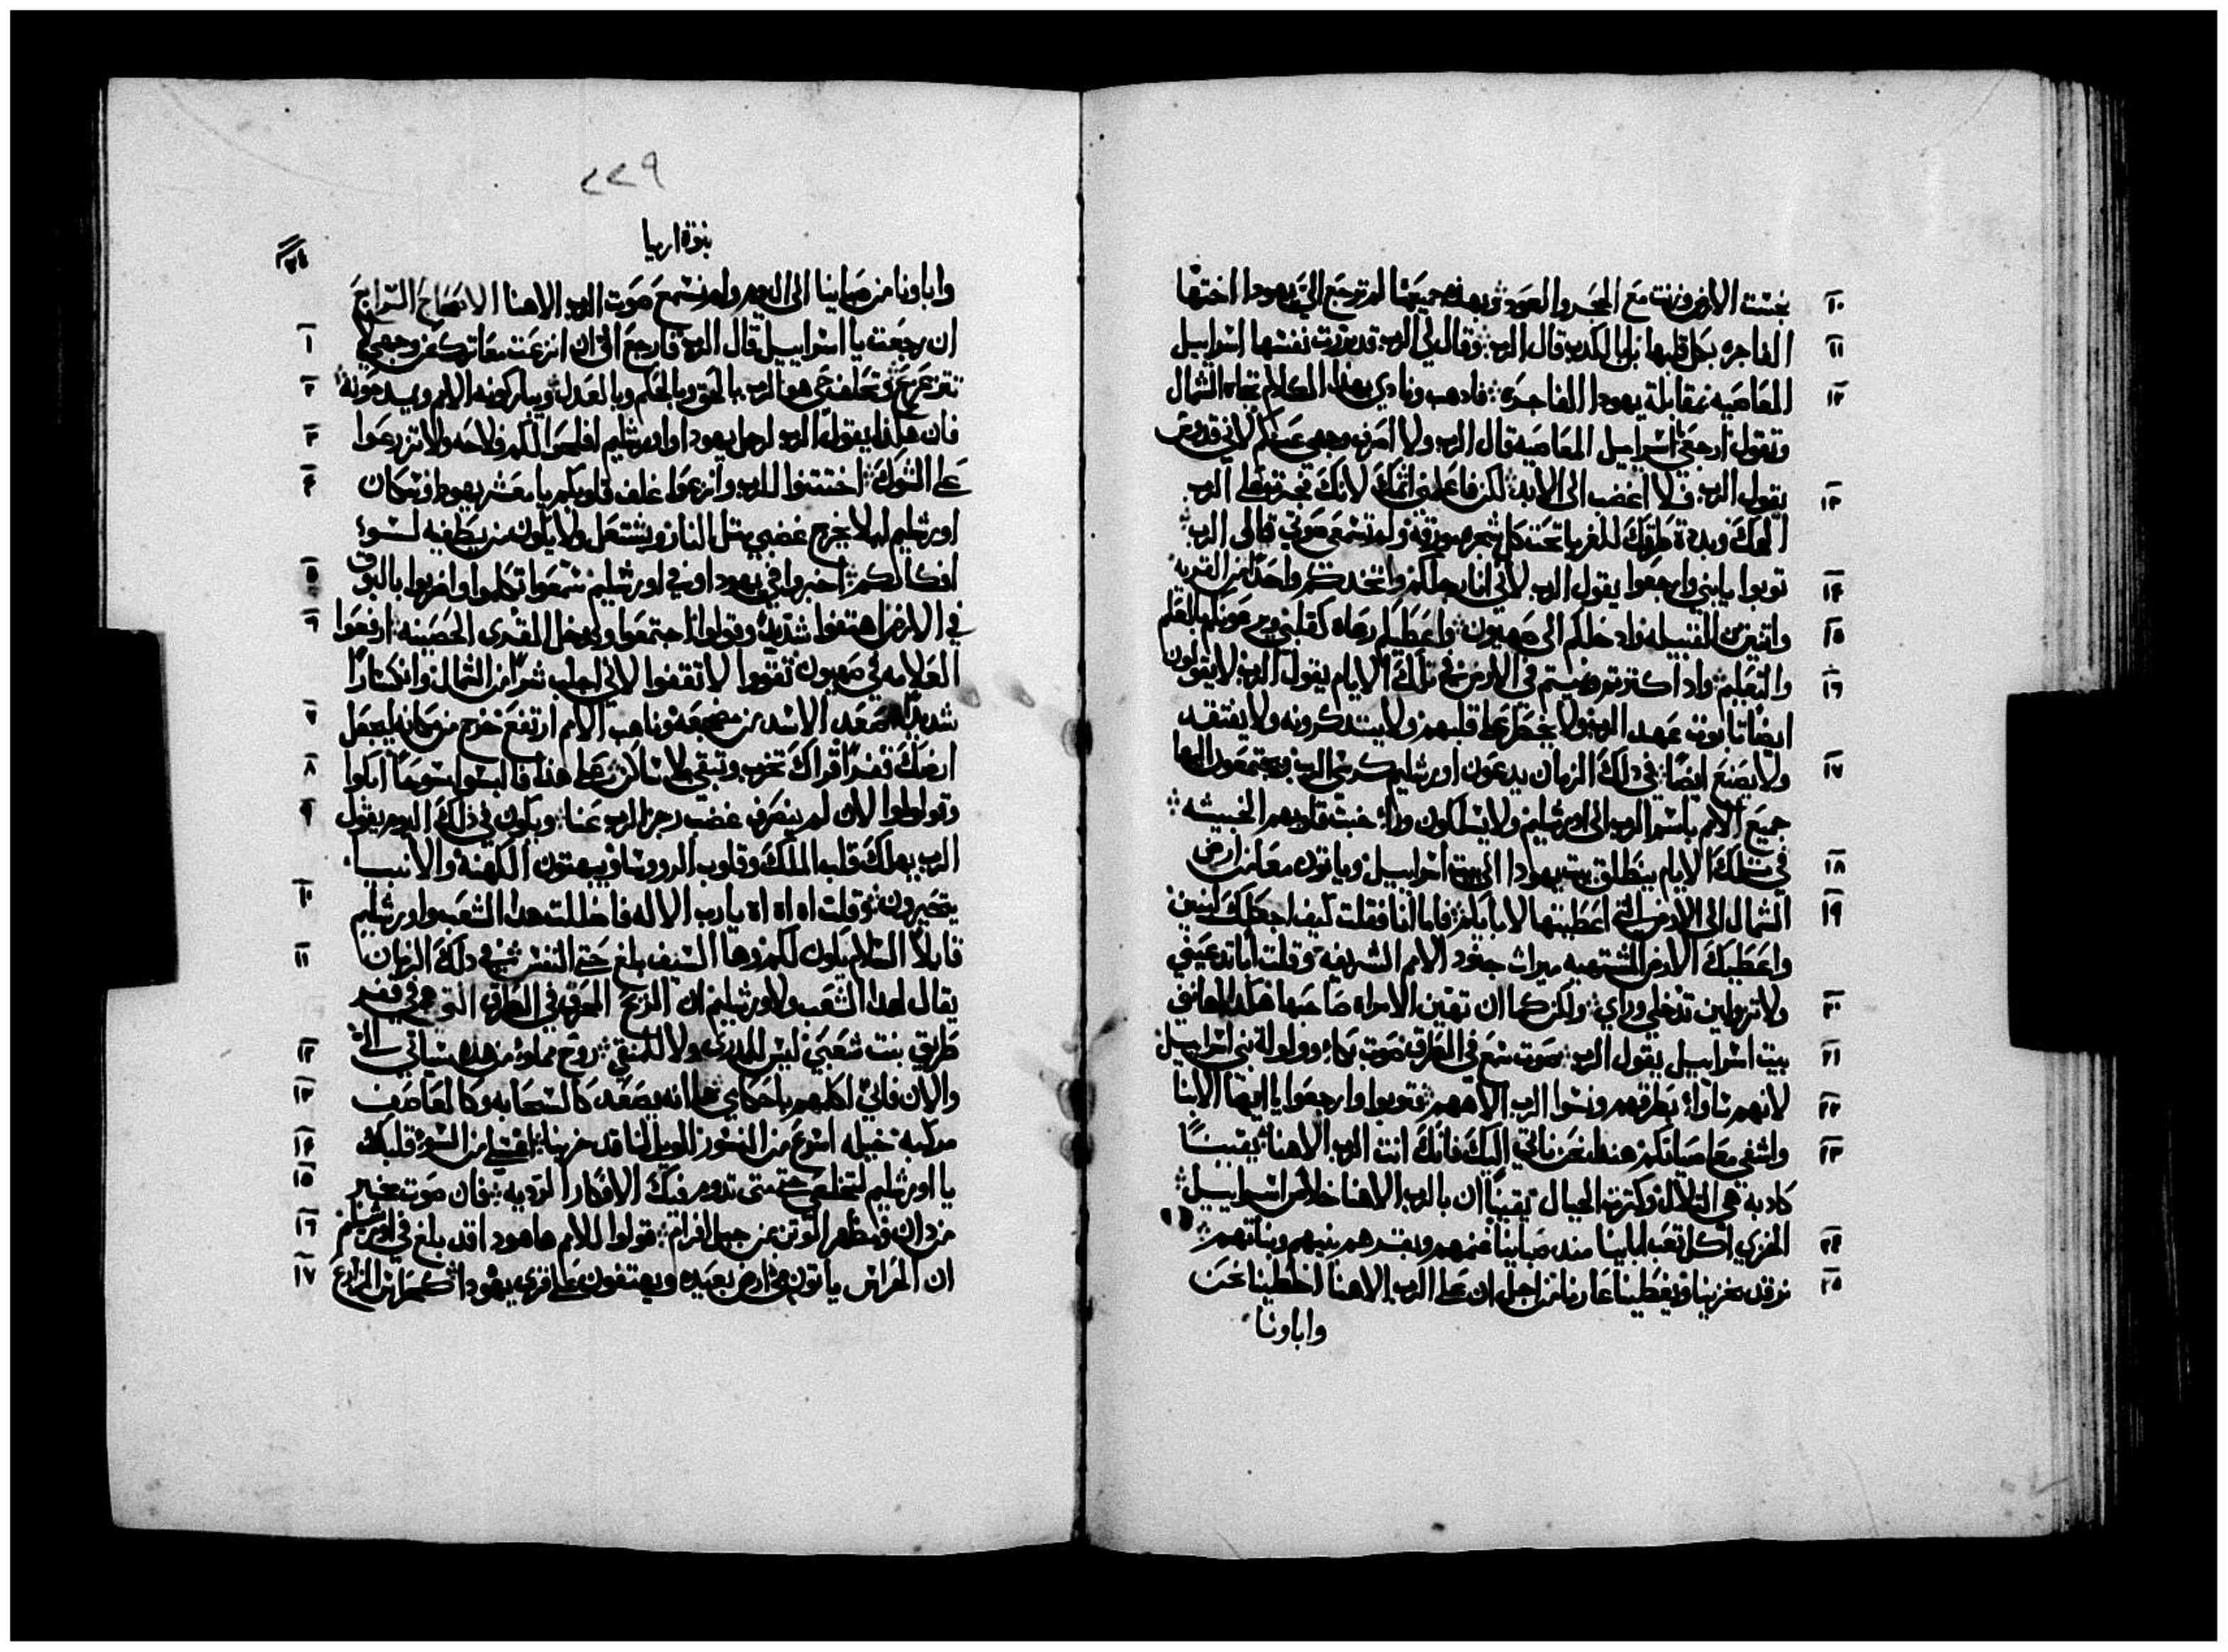 ١٠ نجست الارض وزنت مع الحجر والعود وبهذه جميعها لم ترجع الي يهودا اختها
١١ الفاجره بكل قلبها بل بالكدب قال الرب وقال لي الرب قد بررت نفسها اسراييل
١٢ العاصيه بمقابلة يهودا الفاجره فادهب ونادي بهذا الكلام تجاه الشمال
وتقول ارجعي يا اسراييل العاصيه قال الرب ولا اصرف وجهي عنكم لاني قدوس
١٣ يقول الرب ولا اغضب الى الابد لكن فاعلمي اثمك لانك على الرب
الهك وبددة طرقك للغربا تحت كل شجره مورقه ولم تسمعي صوتي قال الرب
١٤ توبوا يا بني وارجعوا يقول الرب لاني انا رجلكم واتخدكم واحدا من القريه
١٥ واتنين من القبيله وادخلكم الى صهيون واعطيكم رعاه كقلبي ويرعونكم بالعلم
١٦ والتعليم وادا كترتم ونميتم في الارض في تلك الايام يقول الرب لا يقولون
ايضا تابوت عهد الرب ولا يخطر على قلبهم ولا يتدكرونه ولا يفتقد
١٧ ولا يصنع ايضا في دلك الزمان يدعون اورشليم كرسي الرب ويجتمعون اليها
جميع الامم باسم الرب الى اورشليم ولا يسلكون وراء خبث قلوبهم الخبيثه
١٨ في تلك الايام ينطلق بيت يهودا الى بيت اسراييل وياتون معا من ارض
١٩ الشمال الى الارض التي اعطيتها لابايكم فاما انا فقلت كيف اجعلك لبنين
واعطيك الارض المشتهيه ميراث جنود الامم الشريفه وقلت ابا تدعيني
٢٠ ولا تزولين تدخلي وراي ولكن كما ان تهين الامراه صاحبها هكدا اهانني
٢١ بيت اسراييل يقول الرب صوت سمع في الطرق صوت بكاء وولولة بني اسراييل
٢٢ لانهم بطرقهم ونسوا الرب الاههم توبوا وارجعوا يا ايها الابنا
٢٣ واشفي معاصاتكم هندا نحن ناتي اليك فانك انت الرب الاهنا يقينا
كادبه هي التلال وكترت الجبال يقينا ان بالرب الاهنا خلاص اسراييل
٢٤ الخزي اكل تعب ابايينا مند صبايينا غنمهم وبقرهم بنيهم وبناتهم
٢٥ نرقد بخزينا ويغطينا عارنا من اجل ان على الرب الاهنا اخطينا نحن
واباونا
٢٢٩
نبوة ارميا
واباونا من صبايينا الى اليوم ولم نسمع صوت الرب الاهنا الاصحاح الرابع
١ ان رجعت يا اسراييل قال الرب فارجع الى ان انزعت معاترك من وجهي لا
٢ تتزعزع وتحلف حي هو الرب بالحق وبالحكم وبالعدل ويباركونه الامم ويمدحونه
٣ فان هكدا يقول الرب لرجل يهودا واورشليم افلحوا لكم فلاحه ولا تزرعوا
٤ على الشوك اختتنوا للرب وانزعوا غلف قلوبكم يا معشر يهودا وسكان
اورشليم ليلا يخرج غضبي متل النار ويشتعل ولا يكون من يطفيه لسوء
٥ افكاركم اخبروا في يهودا وفي اورشليم سمعوا تكلموا واضربوا بالبوق
٦ في الارض اهتفوا شديدا وقولوا اجتمعوا وندخل القرى الحصينه ارفعوا
العلامه في صهيون تقووا لا تقفوا لاني اجلب شرا من الشمال وانكسارا
٧ شديدا صعد الاسد من مضجعه وناهب الامم ارتفع خرج من مكانه ليجعل
٨ ارضك قفرا قراك تخرب وتبقى بلا ساكن على هذا فالبسوا مسوحا ابكوا
٩ وتولولوا لان لم ينصرف غضب رجز الرب عنا ويكون في ذلك اليوم يقول
الرب يهلك قلب الملك وقلوب الرووسا ويبهتون الكهنة والانبيا
١٠ يتحيرون وقلت اه اه اه يا رب الاله فاضللت هدا الشعب واورشليم
١١ قايلا السلام يكون لكم وها السيف بلغ حتى النفس في دلك الزمان
يقال لهدا الشعب ولاورشليم ان الريح المحرق في الطرق التي هي في قفر
١٢ طريق بنت شعبي ليس للدري ولا للتنقي روح مملوه من هده ستاتي الي
١٣ والان فاني اكلمهم باحكامي ها انه يصعد كالسحابه وكالعاصف
١٤ مركبه خيله اسرع من النسور الويل لنا قد خربنا اغسلي من السوء قلبك
١٥ يا اورشليم لتخلصي حتى متى تدوم فيك الافكار الرديه فان صوت مخبر
١٦ من دان ومظهر الوتن من جبل افرام قولوا للامم ها هودا قد بلغ في اورشليم
١٧ ان الحراس ياتون من ارض بعيده ويهتفون على قرى يهودا كحراس المزارع